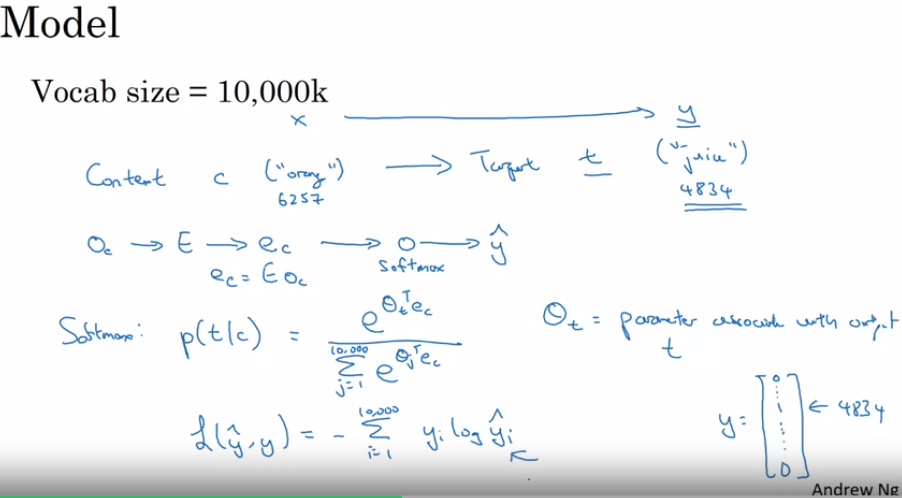 Model
Vocab size = 10,000k
x → y
Context c ("orange") → Target t ("juice")
6257 4834
O_c → E → e_c → o → ŷ
e_c = E O_c softmax
Softmax: p(t|c) = e^{θ_t^T e_c} / Σ_{j=1}^{10,000} e^{θ_j^T e_c}
θ_t = parameter associated with output t
ℒ(ŷ, y) = - Σ_{i=1}^{10,000} y_i log ŷ_i
y = [0 ⋮ 1 ⋮ 0] ← 4834
Andrew Ng